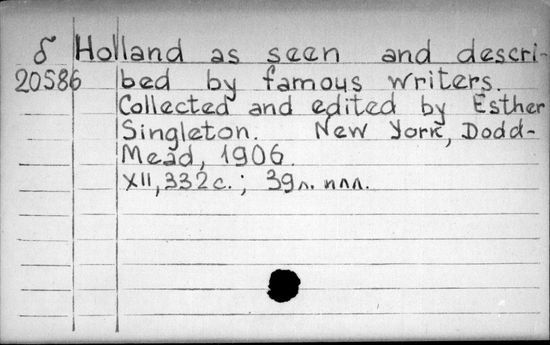 δ Holland as seen and descri-
20586 bed by famous writers.
Collected and edited by Esther
Singleton. New York, Dodd-
Mead, 1906.
XII, 332 c.; 39 л. илл.